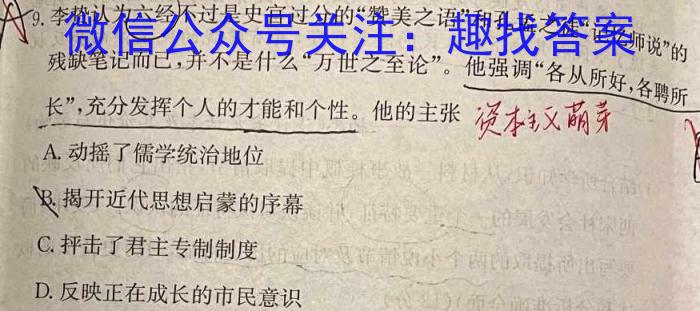 9.李贽认为六经不过是史官过分的“赞美之语”和
师说”的
微信公众号关注：趣找答案
残缺笔记而已，并不是什么“万世之至论”。他强调“各从所好，各聘所
长”，充分发挥个人的才能和个性。他的主张 资本主义萌芽
A.动摇了儒学统治地位
B.揭开近代思想启蒙的序幕
C.抨击了君主专制制度
D.反映正在成长的市民意识